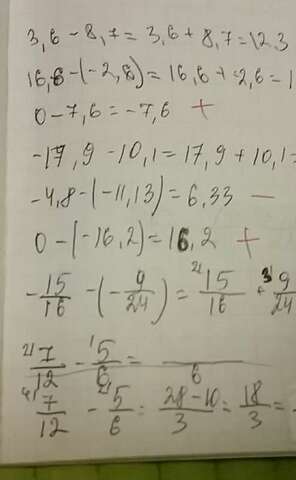 3,6 - 8,7 = 3,6 + 8,7 = 12,3
16,6 - (-2,8) = 16,6 + -2,6 = 1
0 - 7,6 = -7,6 +
-17,9 - 10,1 = 17,9 + 10,1 =
-4,8 - (-11,13) = 6,33 -
0 - (-16,2) = 16,2 +
-15/16 - (-9/24) = 2) 15/16 + 3) 9/24
2) 7/12 - 1) 5/6 = /6
4) 7/12 - 2) 5/6 = 28-10/3 = 18/3 = -